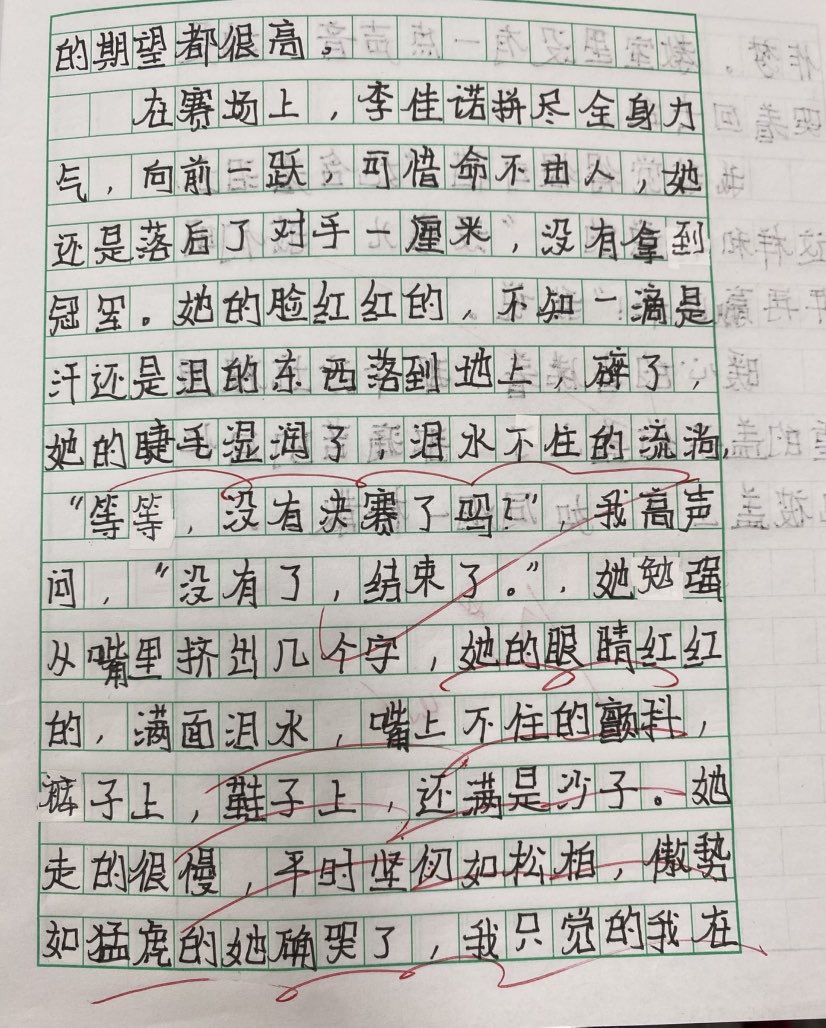 的期望都很高。
在赛场上，李佳诺拼尽全身力
气，向前一跃，可惜命不由人，她
还是落后了对手一厘米，没有拿到
冠军。她的脸红红的，不知一滴是
汗还是泪的东西落到地上，碎了，
她的睫毛湿润了，泪水不住的流淌，
“等等，没有决赛了吗？”，我高声
问，“没有了，结束了。”，她勉强
从嘴里挤出几个字，她的眼睛红红
的，满面泪水，嘴上不住的颤抖，
裤子上，鞋子上，还满是沙子。她
走的很慢，平时坚仞如松柏，傲势
如猛虎的她确哭了，我只觉的我在